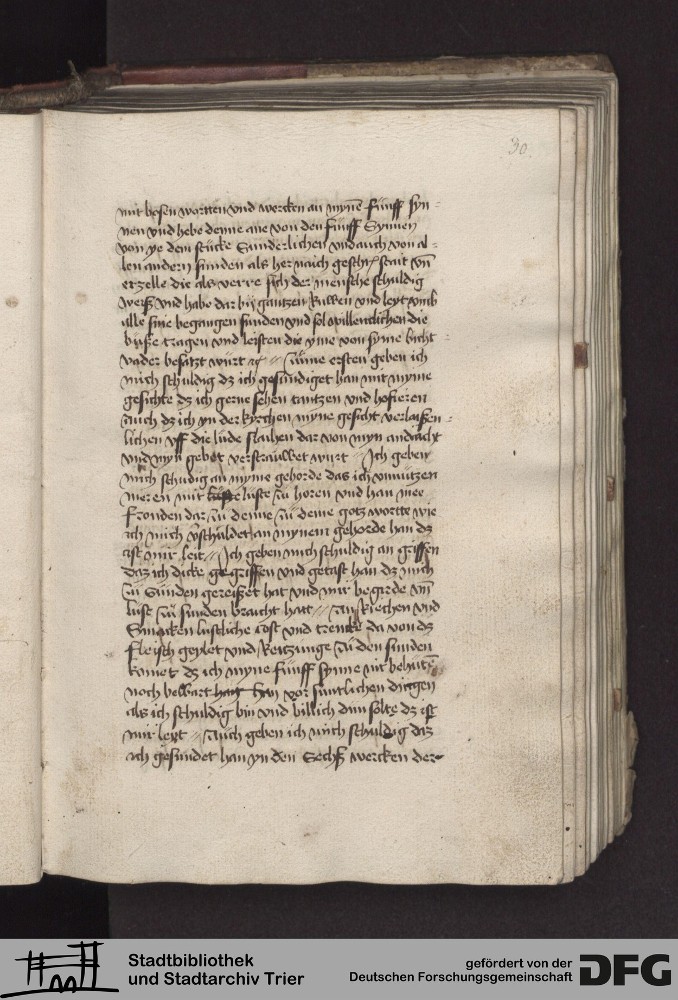 30.
mit bosen wortten vnd wercken an mynē fünff syn-
nen vnd hebe denne ane von den fünff Synnen
von ye dem stücke Sunderlichen vnd auch von al-
len andern sunden als her naich geschr stait vn̄
erzelle die als verre sich der mensche schuldig
weiß vnd habe dar by gantzen Ruwen vnd leyt vmb
alle sine begangen sunden vnd sol williclichen die
busse tragen vnd leisten die yme von syme bicht-
vader besatzt würt Zume ersten geben ich
mich schuldig dz ich gesundiget han mit myme
gesichte dz ich gerne sehen tantzen vnd hofieren
Auch dz ich yn der kyrchen myne gesicht verlaißen-
lichen vff die lude slahen dar von myn andacht
vnd myn gebet wurt Ich geben
mich schudig an myme gehorde das ich vnnützen
meren mit luste zu horen vnd han me
fronden dar zu denne zu deme gotz wortte wie
ich mich v̄schuldet an mynem gehorde han dz
ist mir leit Ich geben mich schuldig an griffen
daz ich dicke gegriffen vnd getast han dz mich
zu Sunden gereißet hat vnd mir begirde vn̄
lust zu sunden braicht hatt an Riechen vnd
Smacken lustliche cost vnd trencke da von dz
fleisch geylet vnd Reitzunge zu den sunden
komet dz ich myne fünff synne nit behuttē
noch bewart han vor suntlichen dingen
als ich schuldig bin vnd billich dun solte dz ist
mir leyt Auch geben ich mich schuldig daz
ich gesundet han yn den Sechß wercken der
Stadtbibliothek
und Stadtarchiv Trier
gefördert von der
Deutschen Forschungsgemeinschaft
DFG